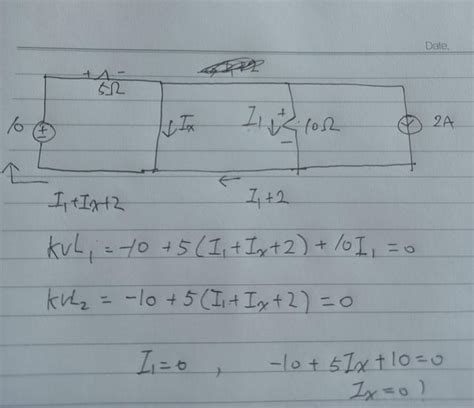 Date.
+ -
5Ω
10
+
-
Ix
I1
+
-
10Ω
2A
I1+Ix+2
I1+2
KVL1 = -10 + 5(I1+Ix+2) + 10I1 = 0
KVL2 = -10 + 5(I1+Ix+2) = 0
I1=0 , -10 + 5Ix + 10 = 0
Ix = 0 )